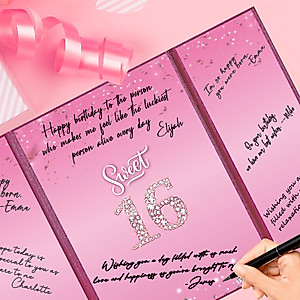 Happy birthday to the person
who makes me feel like the luckiest
person alive every day
Elijah
Sweet
16
Wishing you a day filled with as much
love and happiness as you've brought to my
I'm so happy
you were born.
-Emma
On your birthday
Wishing you a
filled with
relaxation
born.
-Emma
hope today is
special to you as
are to me
Charlotte